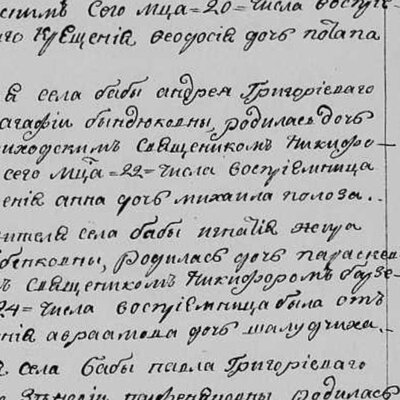 нимъ Сего Мца = 20 = числа воспріе
го Крещенія Ѳеодосія дочь потапа
я села бабы андрея Григоріеваго
агафіи бындюковны, родилась дочь
риходскимъ Священикомъ Никифо-
сего Мца = 22 = числа воспріемница
енія анна дочь михаила полоза..
жителя села бабы игнатія
бенковны, родилась дочь параскев
ъ Священикомъ Никифоромъ
24 = числа воспріемница была отъ
нія авраамова дочь
села бабы павла Григоріеваго
родилась